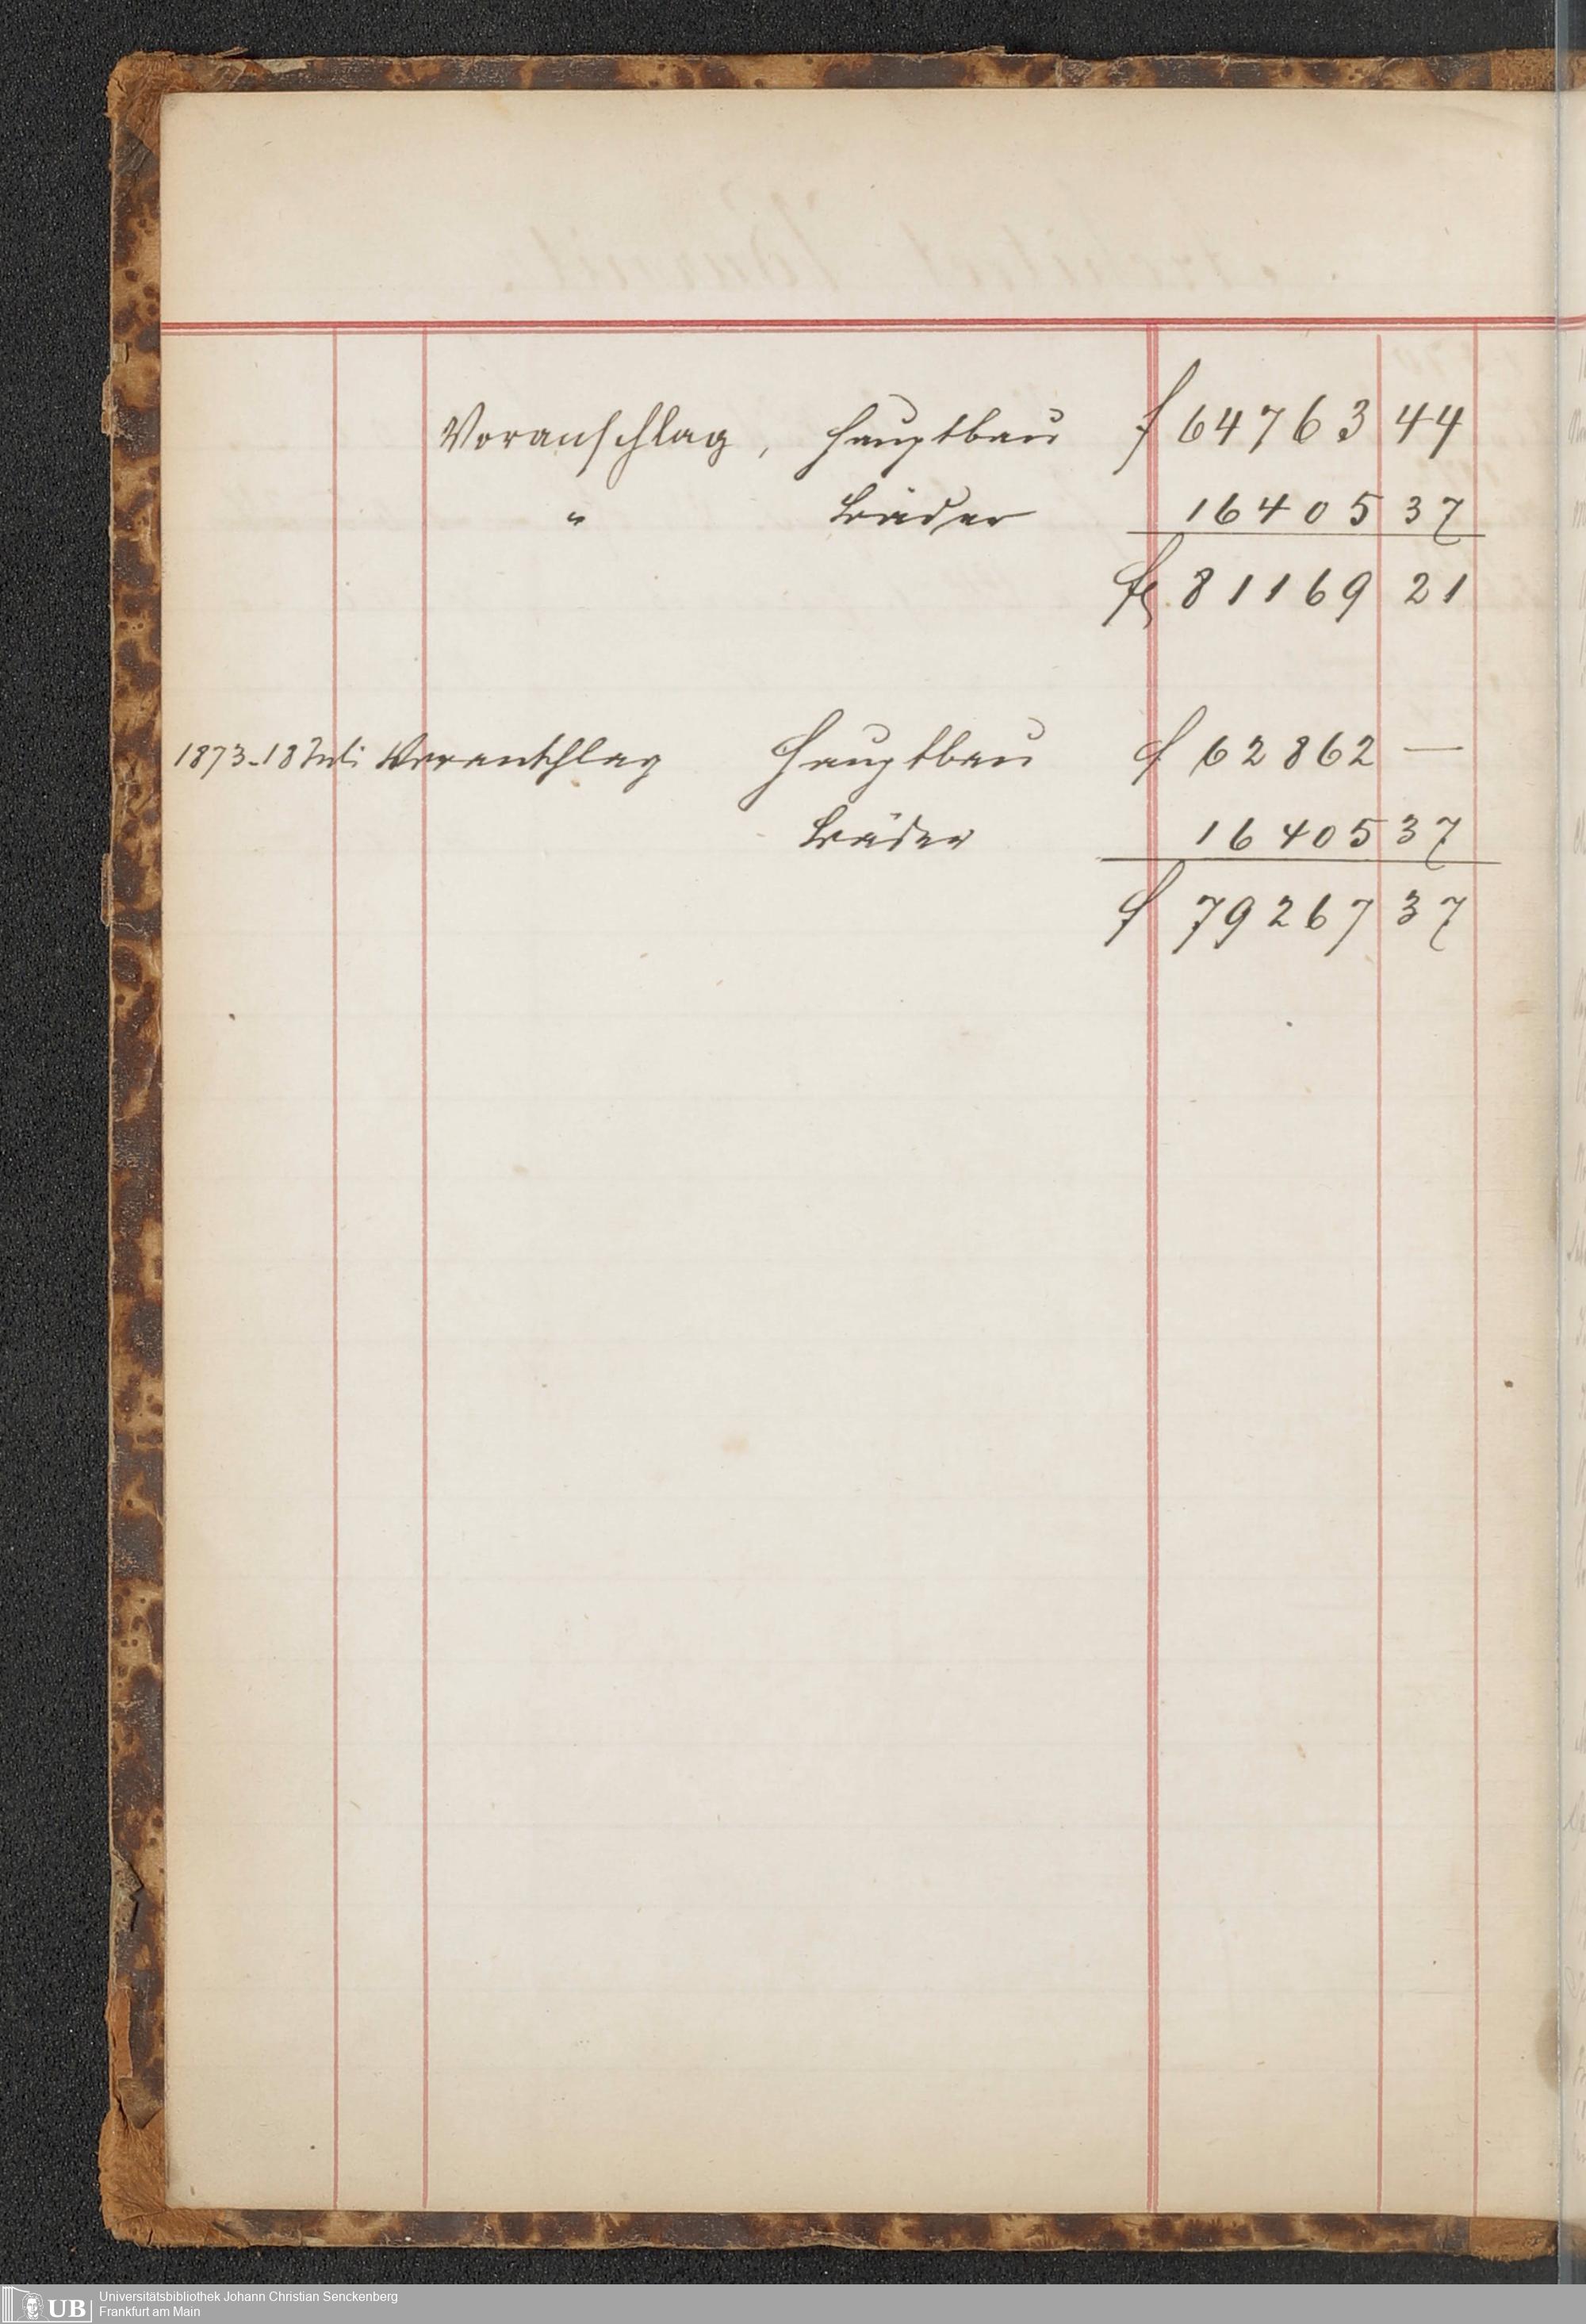 Voranschlag, Hauptbau f 64763 44
" Bäder 16405 37
fl 81169 21
1873-18 Juli Voranschlag Hauptbau f 62862 —
Bäder 16405 37
f 79267 37
UB Universitätsbibliothek Johann Christian Senckenberg
Frankfurt am Main